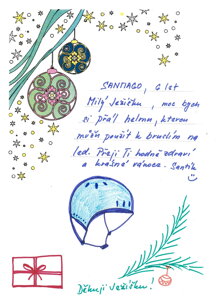 SANTIAGO, 6 let
Milý Ježíšku, moc bych
si přál helmu, kterou
můžu použít k bruslím na
led. Přeji Ti hodně zdraví
a krásné vánoce. Santík
Děkuji Ježíšku!